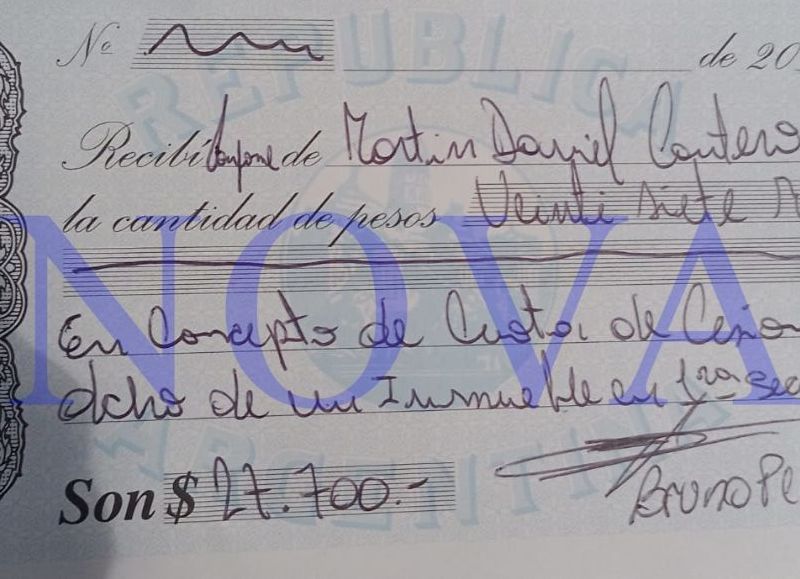 Nº de 20
REPUBLICA
Recibí Conforme de Martin Daniel Cantero
la cantidad de pesos Veinti siete
NOVA
En Concepto de Cuota de
ocho de un Inmueble en 1ra
ARGENTINA
Son $ 27.700.-
Bruno Pe